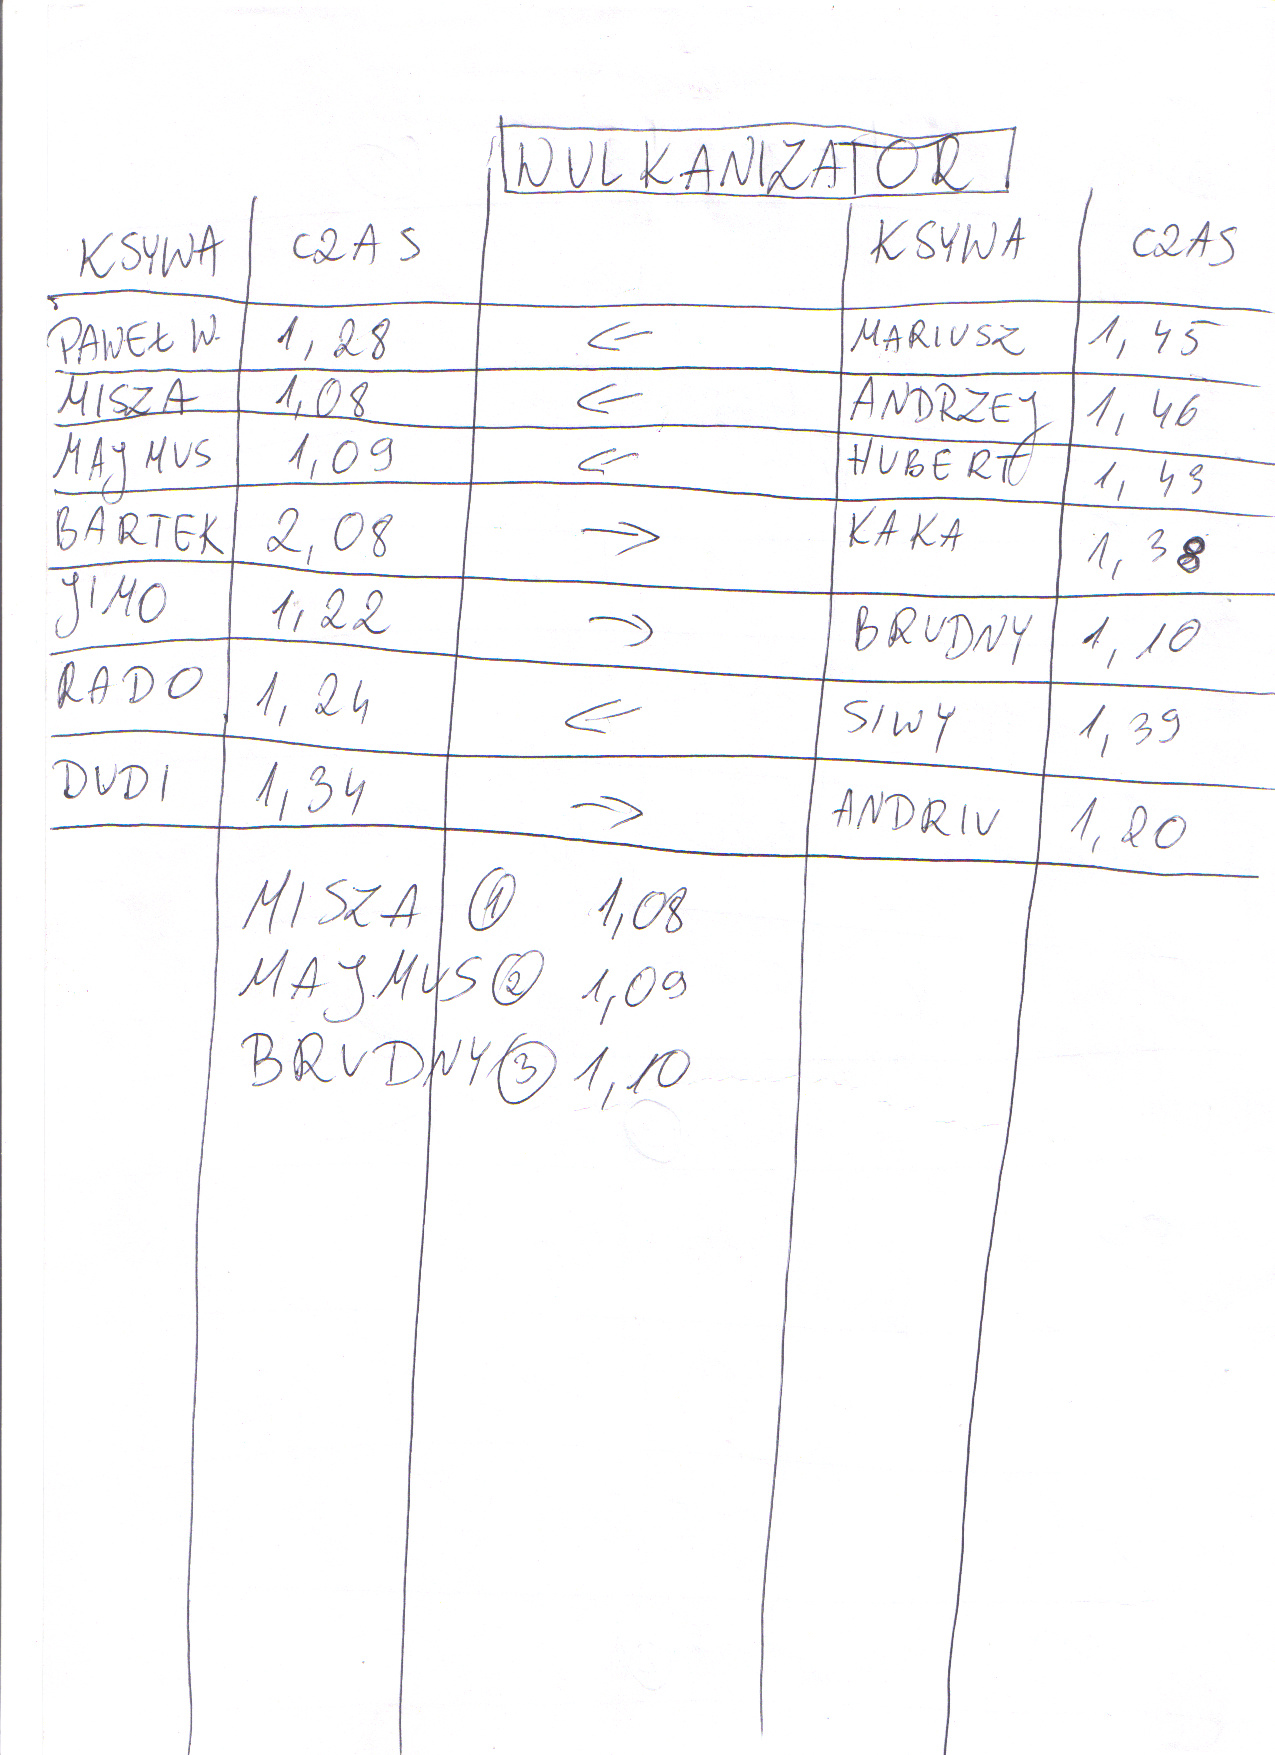 WULKANIZATOR
KSYWA CZAS KSYWA CZAS
PAWEŁ W. 1,28 ← MARIUSZ 1,45
MISZA 1,08 ← ANDRZEJ 1,46
MAJMUS 1,09 ← HUBERT 1,49
BARTEK 2,08 → KAKA 1,38
JIMO 1,22 → BRUDNY 1,10
RADO 1,24 ← SIWY 1,39
DUDI 1,34 → ANDRIU 1,20
MISZA ① 1,08
MAJMUS ② 1,09
BRUDNY ③ 1,10